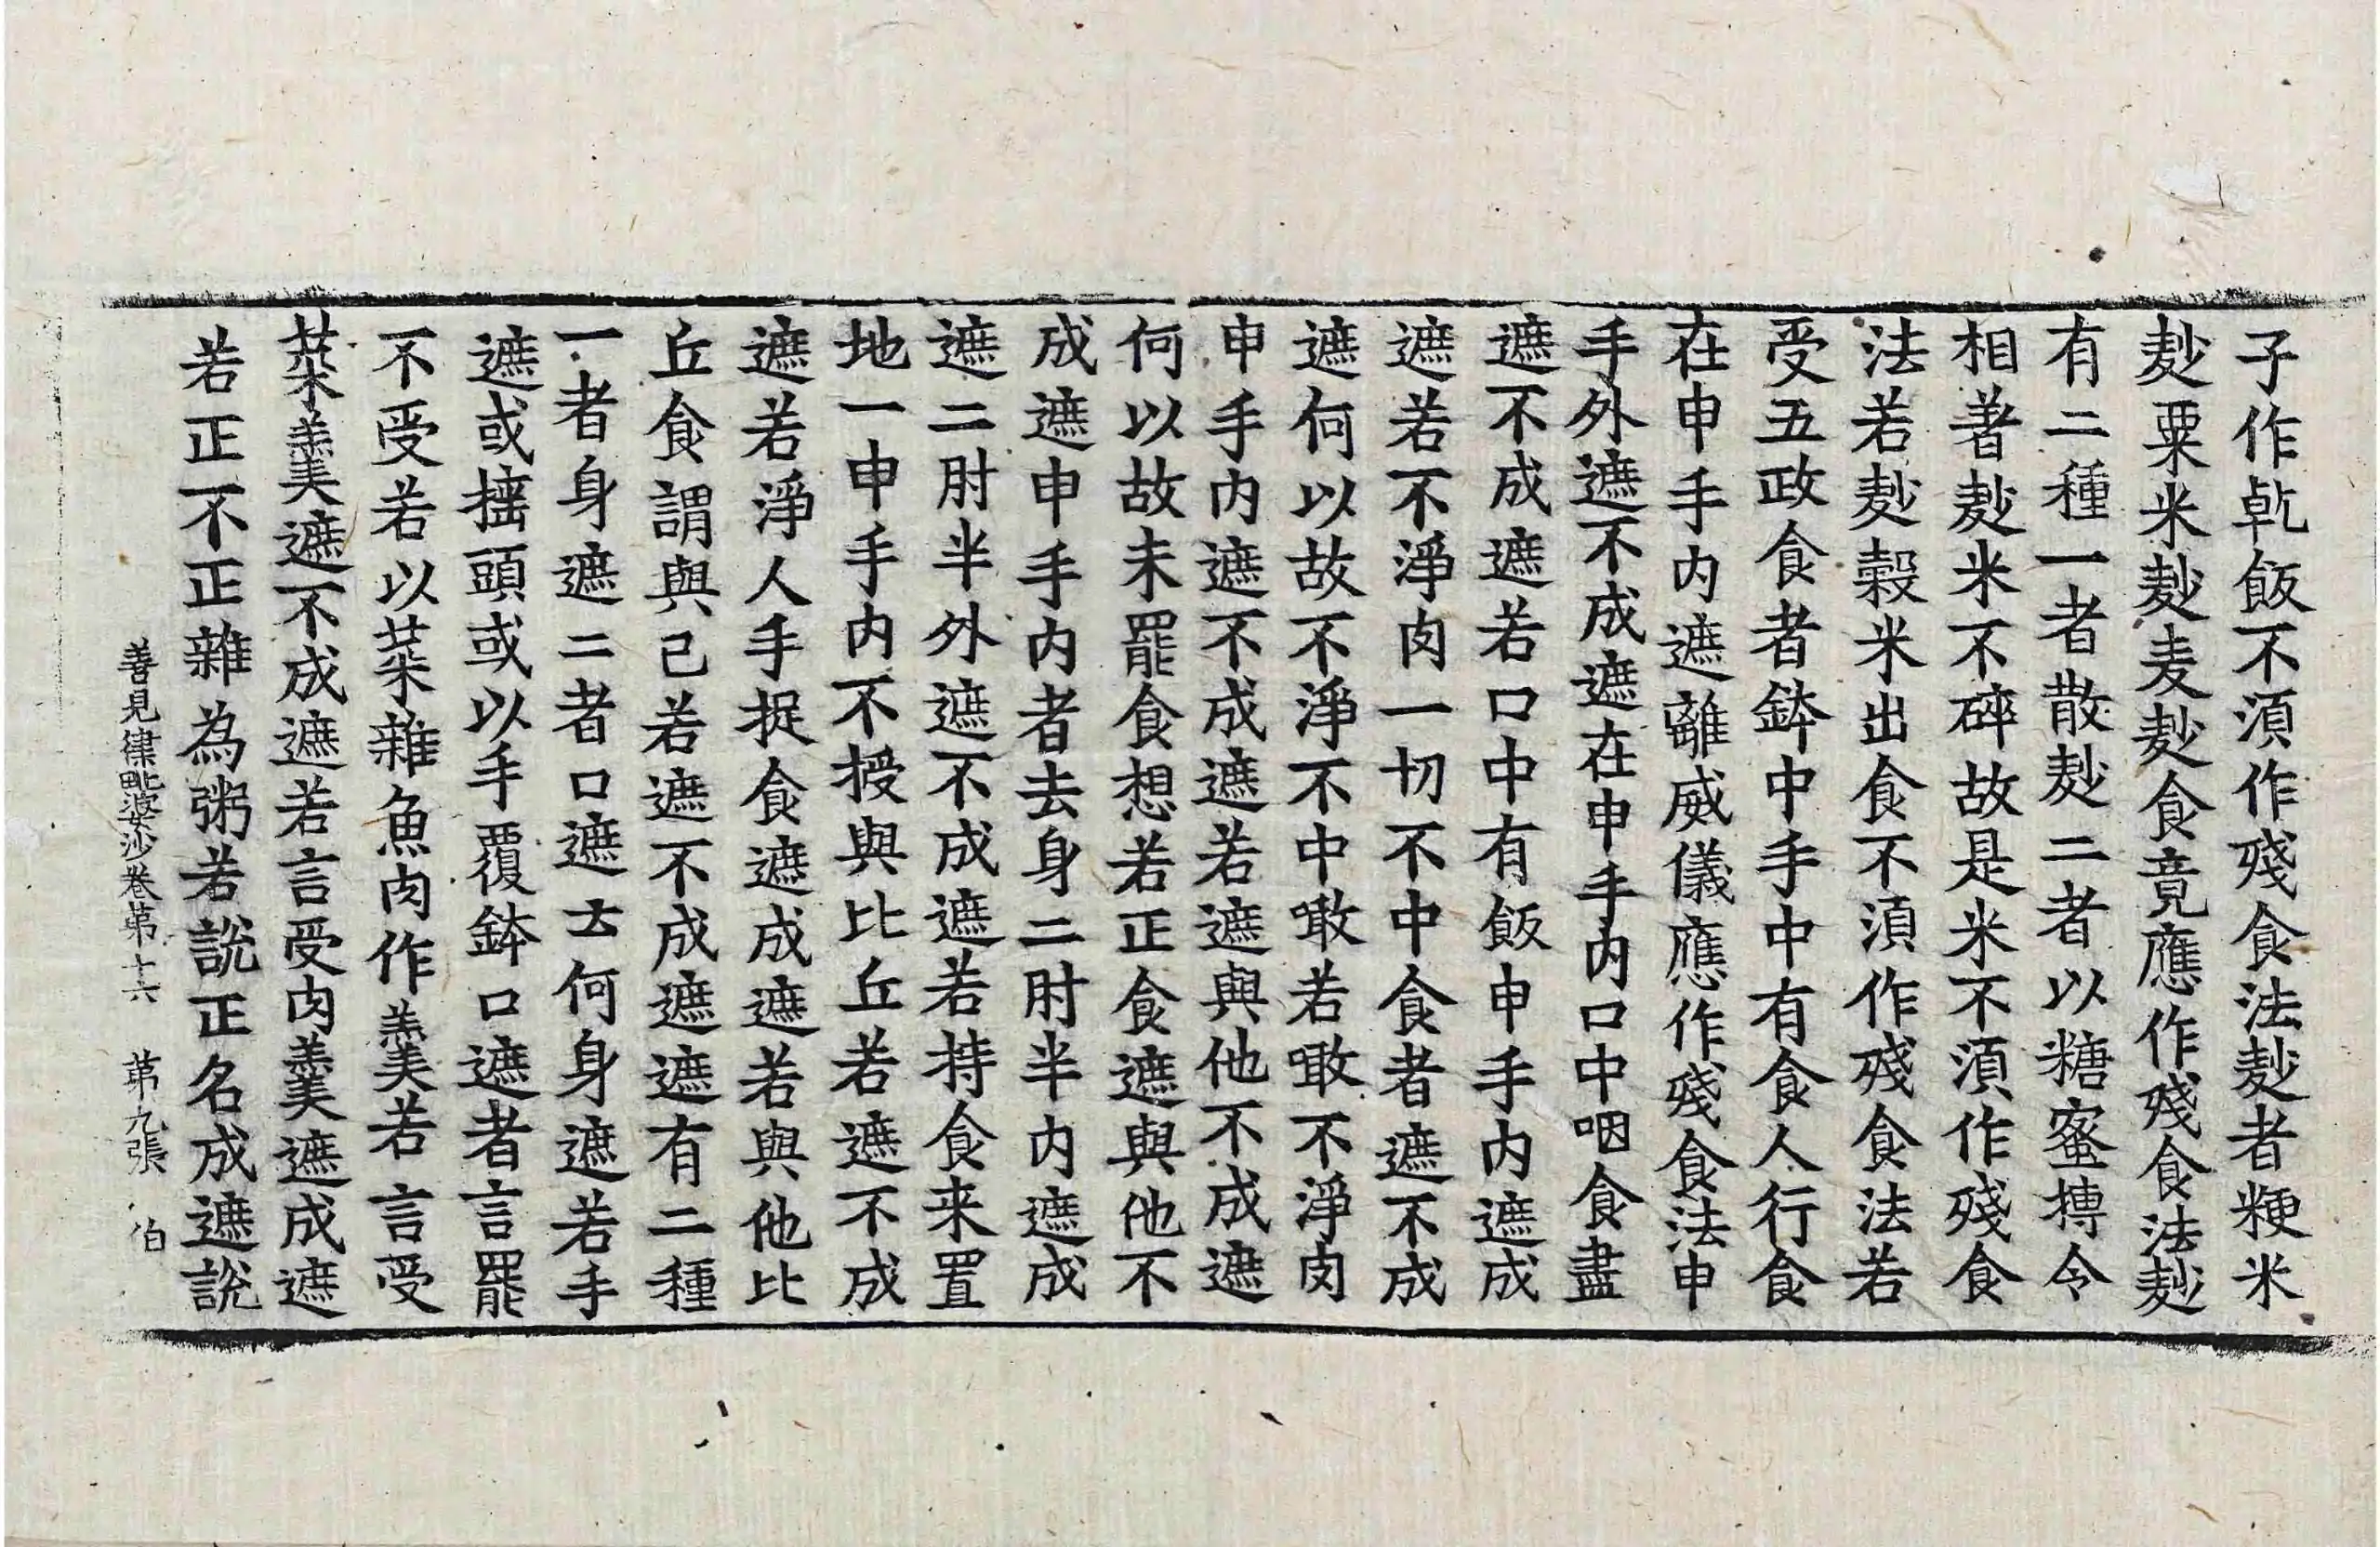 子作乹飯不湏作殘食法麨者粳米
麨粟米麨麦麨食竟應作殘食法麨
有二種一者散麨二者以糖蜜摶令
相著麨米不碎故是米不湏作殘食
法若麨穀米出食不湏作殘食法若
受五政食者鉢中手中有食人行食
在申手内遮離威儀應作殘食法申
手外遮不成遮在申手内口中咽食盡
遮不成遮若口中有飯申手内遮成
遮若不淨肉一切不中食者遮不成
遮何以故不淨不中噉若噉不淨肉
申手内遮不成遮若遮與他不成遮
何以故未罷食想若正食遮與他不
成遮申手内者去身二肘半内遮成
遮二肘半外遮不成遮若持食来置
地一申手内不授與比丘若遮不成
遮若淨人手捉食遮成遮若與他比
丘食謂與己若遮不成遮遮有二種
一者身遮二者口遮云何身遮若手
遮或搖頭或以手覆鉢口遮者言罷
不受若以菜雜魚肉作羹若言受
菜羹遮不成遮若言受肉羹遮成遮
若正不正雜為粥若說正名成遮說
善見律毗婆沙卷苐十六　苐九張　伯